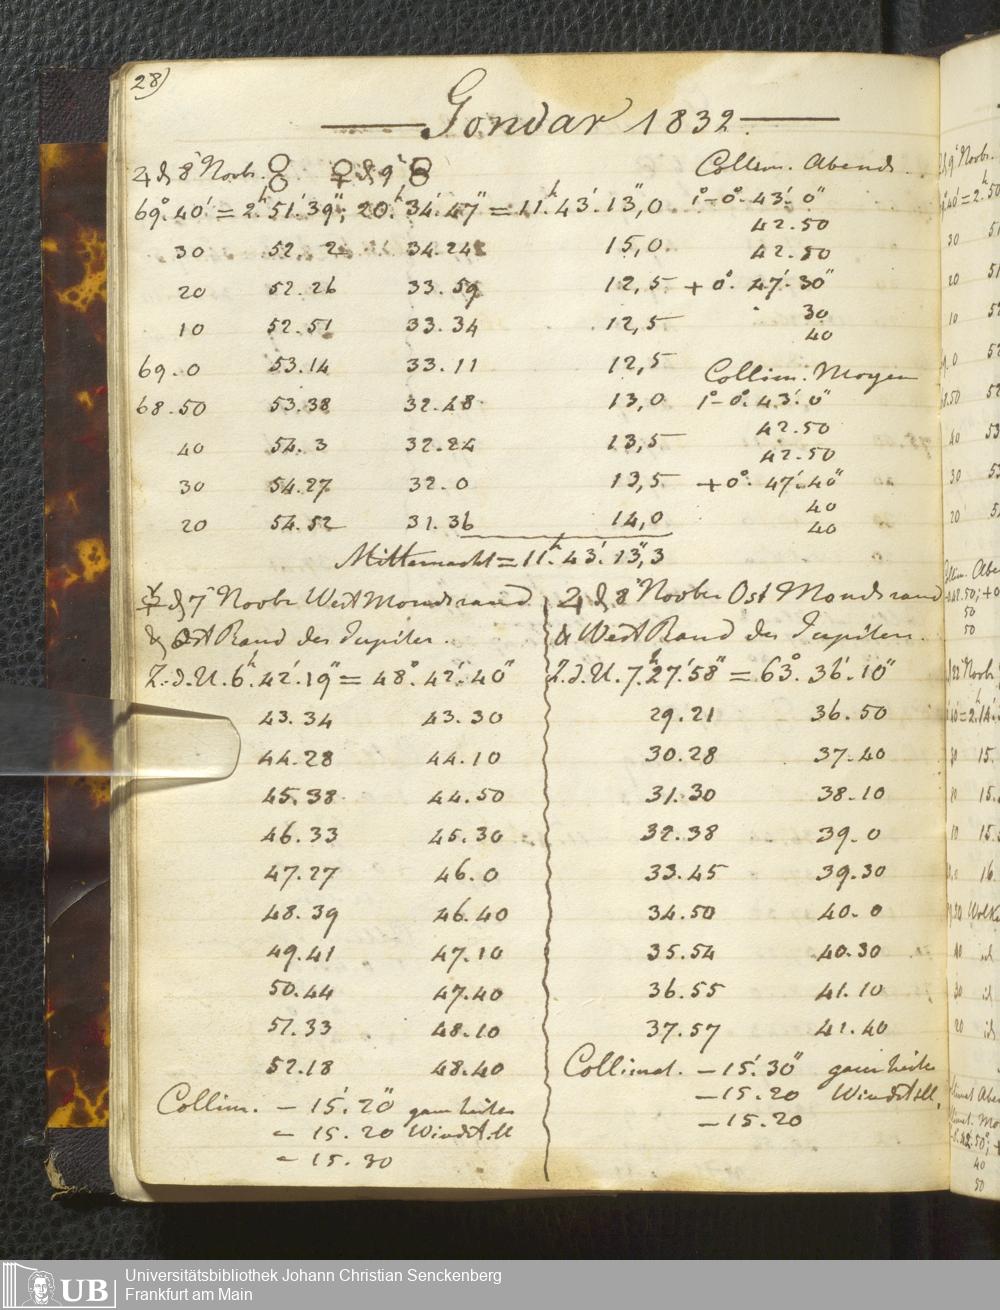 28)
Gondar 1832.
♃ d 8ᵗ Novbr. ☉ ♀ d 9ᵗ Collim. Abends.
69°. 40' = 2ʰ. 51'. 39"; 20ʰ. 34'. 47" = 11ʰ. 43'. 13",0 1°-0°. 43'. 0"
42.50
30 52. 2 34.24 15,0 42.50
20 52.26 33.59 12,5 + 0°. 47'. 30"
30
10 52.51 33.34 12,5 40
69.0 53.14 33.11 12,5 Collim. Morgen
68.50 53.38 32.48 13,0 1°-0°. 43'. 0"
42.50
40 54.3 32.24 13,5 42.50
30 54.27 32.0 13,5 +0°. 47'. 40"
40
20 54.52 31.36 14,0 40
Mitternacht = 11ʰ. 43'. 13",3
☿ d 7ᵗ Novbr West Mondsrand
& Ost Rand des Jupiter.
Z.d.U. 6ʰ. 42'. 19" = 48°. 42'. 40"
43.34 43.30
44.28 44.10
45.38 44.50
46.33 45.30
47.27 46.0
48.39 46.40
49.41 47.10
50.44 47.40
51.33 48.10
52.18 48.40
Collim. - 15'. 20" ganz heiter
- 15. 20 Windstill
- 15. 30
♃ d 8ᵗ Novbr Ost Mondsrand
& West Rand des Jupiters.
Z.d.U. 7ʰ. 27'. 58" = 63°. 36'. 10"
29.21 36.50
30.28 37.40
31.30 38.10
32.38 39.0
33.45 39.30
34.50 40.0
35.54 40.30
36.55 41.10
37.57 41.40
Collimat. - 15'. 30" ganz heiter
- 15. 20 Windstill,
- 15. 20
UB
Universitätsbibliothek Johann Christian Senckenberg
Frankfurt am Main